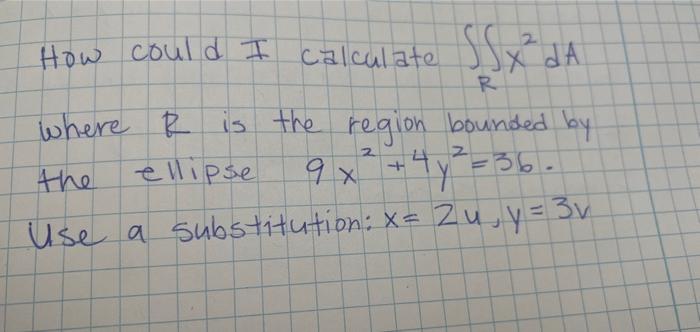 How could I calculate ∬x² dA
R
where R is the region bounded by
the ellipse 9x² + 4y² = 36.
Use a substitution: x = 2u, y = 3v